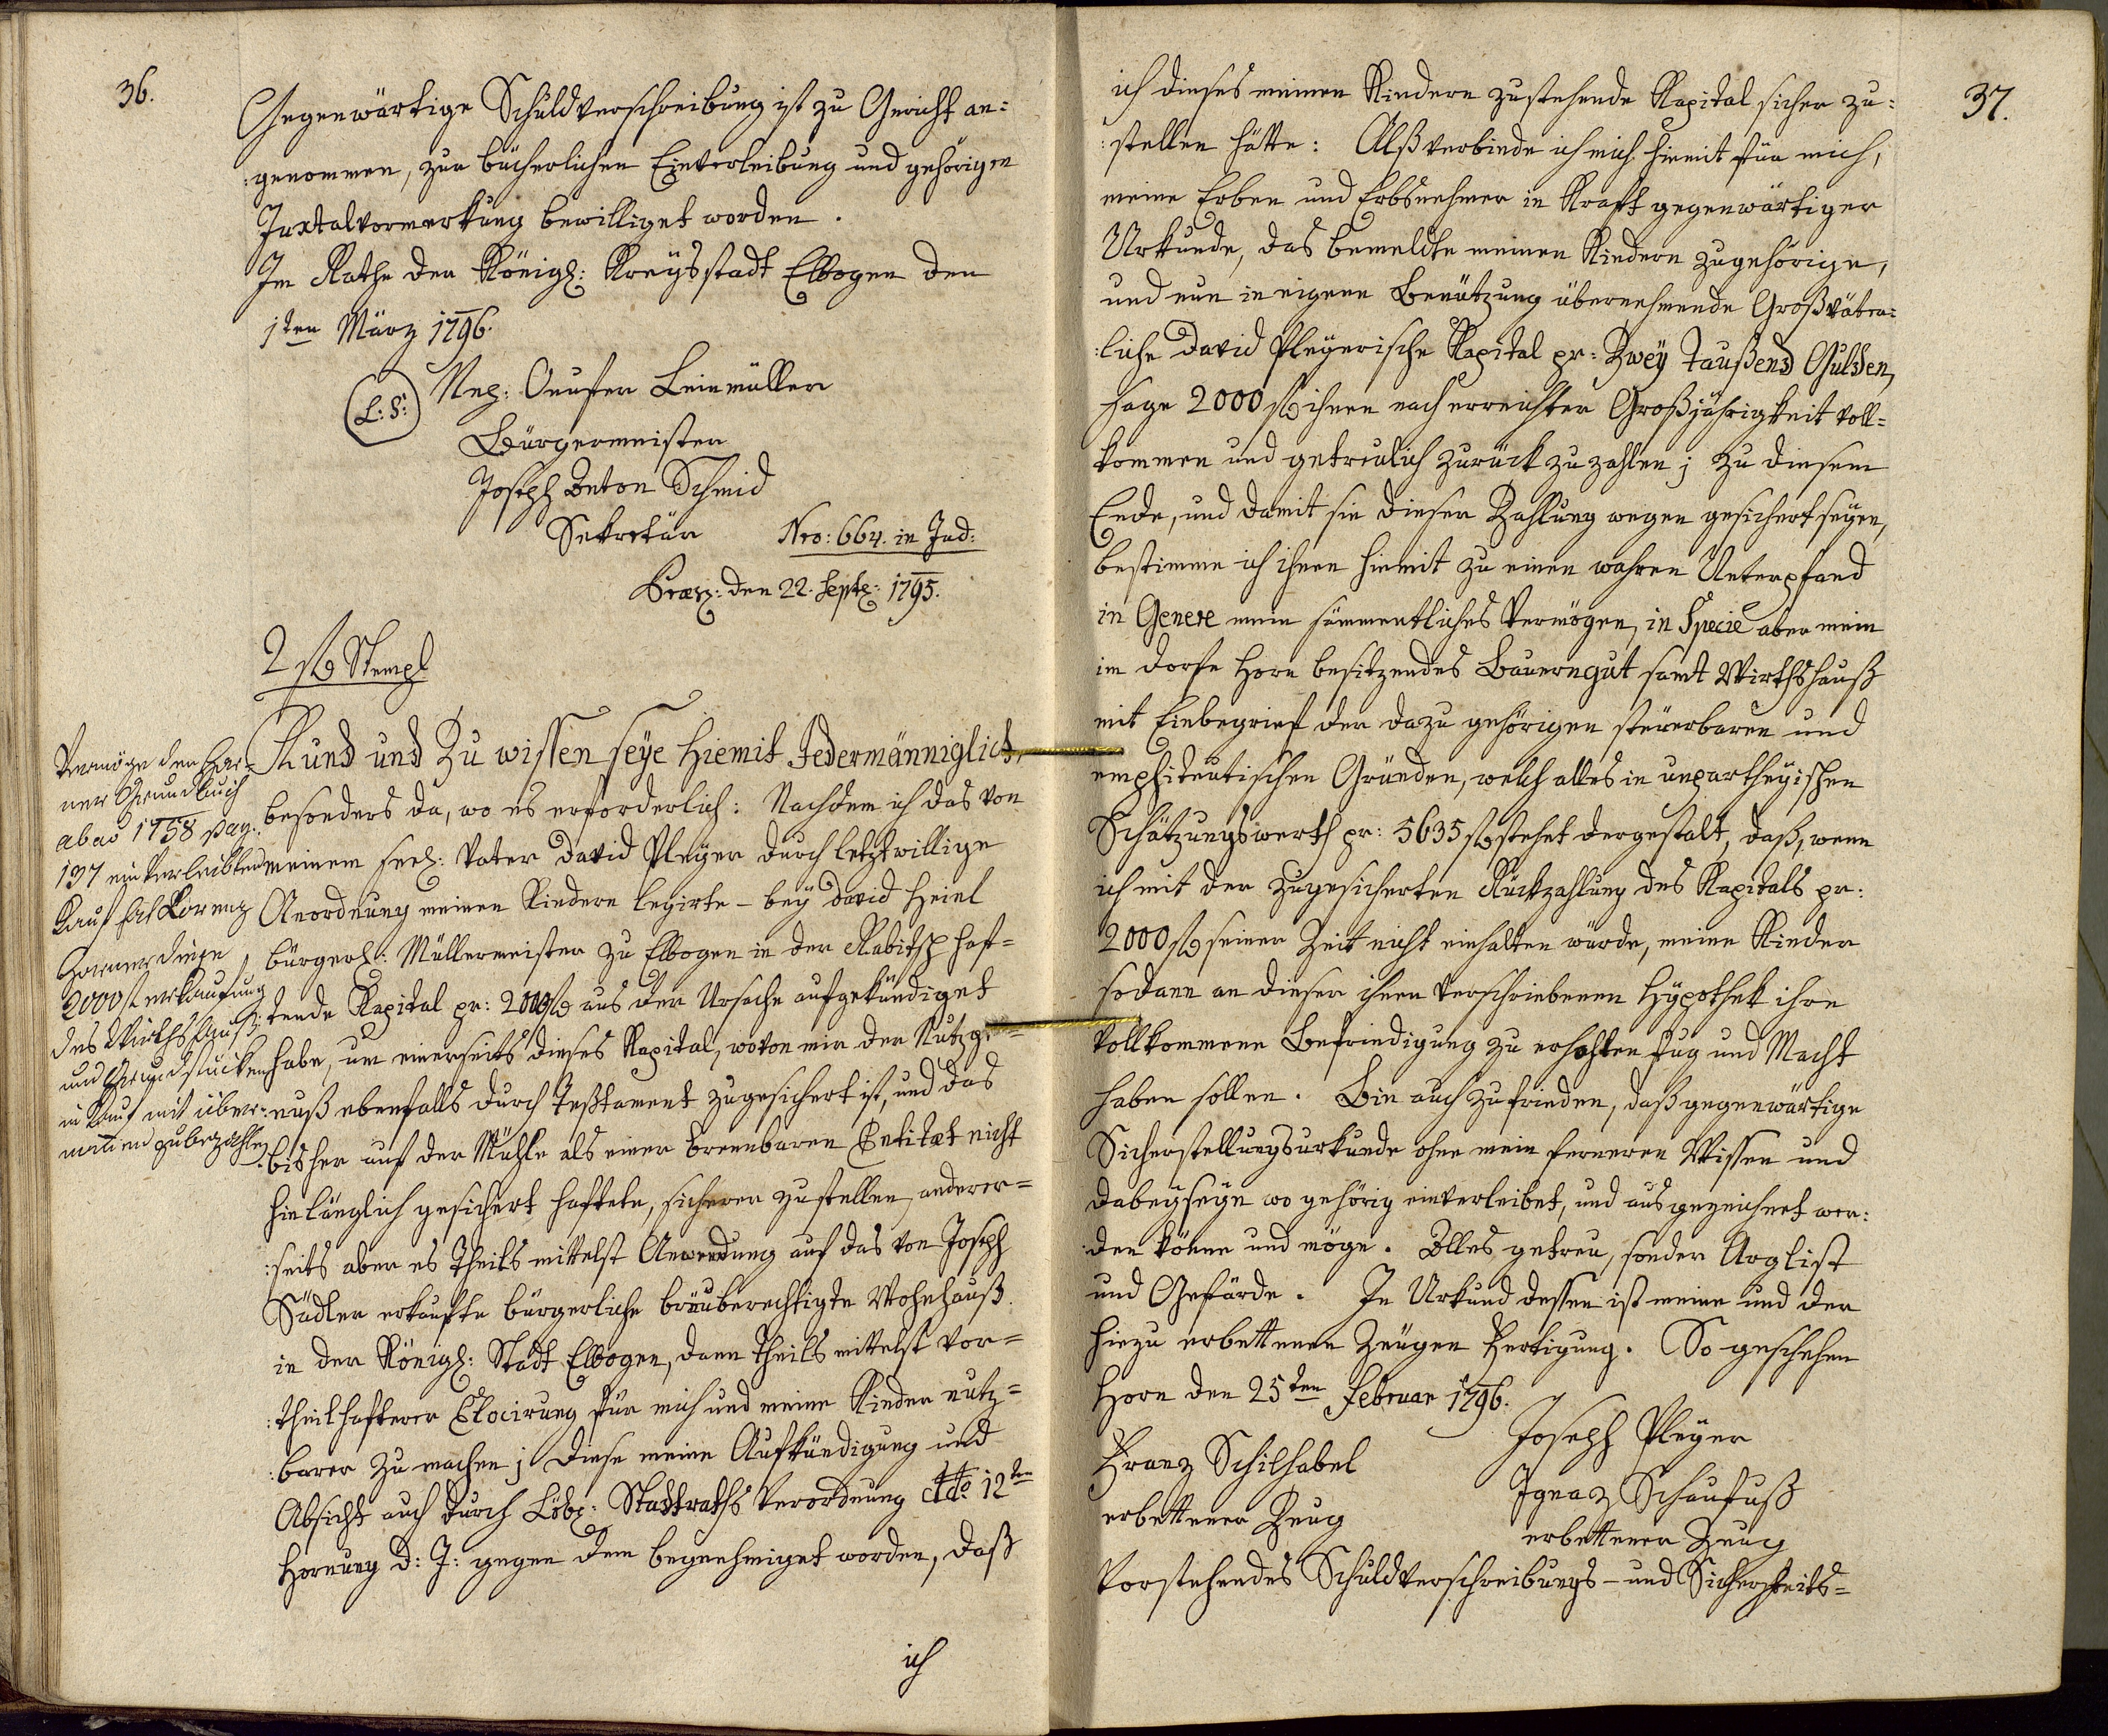 36.
Gegenwärtige Schuldverschreibung ist zu Gericht an=
:genommen, zur bücherlichen Einverleibung und gehörigen
Juxtalvormerkung bewilliget worden.
Im Rathe der Königl: Kreysstadt Elbogen den
1ten März 1796.
(L:S:) Nep: Onufer Leinmüller
Bürgermeister
Joseph Anton Schmid
Sekretär Nro: 664. in Jud:
Præs: den 22. Sept: 1795.
2 f Stempl
Kund und Zu wissen seye hiemit Jedermänniglich,
besonders da, wo es erforderlich: Nachdem ich das von
meinem seel: Vater David Pleyer durch letztwillige
Anordnung meinen Kindern legirte – bey David Heinl
bürgerl: Müllermeister zu Elbogen in der Rabitsch haf=
:tende Kapital pr: 2000 f aus der Ursache aufgekündiget
habe, um einerseits dieses Kapital, wovon mir der Nutzge=
:nuß ebenfalls durch Testament zugesichert ist, und das
bisher auf der Mühle als einer brennbaren Entitæt nicht
hinlänglich gesichert haftete, sicherer zu stellen, anderer=
:seits aber es Theils mittelst Anwendung auf das von Joseph
Sädler erkaufte bürgerliche bräuberechtigte Wohnhauß
in der Königl: Stadt Elbogen, dann Theils mittelst vor=
:theilhafterer Elocirung für mich und meine Kinder nutz=
:barer zu machen; diese meine Aufkündigung und
Absicht auch durch Löbl: Stadtraths Verordnung ddto 12ten
Hornung d: J: gegen dem begnehmiget worden, daß
ich
Vermöge den Hor=
ner Grundbuch
ab aõ 1758 pag.
137 einverleibten
Kauf hat Lorenz
2000 f
des Wirthshauß
und Grundstücken
in Kauf mit über=
zubezahlen
37.
ich dieses meinen Kindern zustehende Kapital sicher zu=
:stellen hätte: Alß verbinde ich mich hiemit für mich,
meine Erben und Erbsnehmer in Kraft gegenwärtiger
Urkunde, das bemeldte meinen Kindern zugehörige,
und nun in eigene Benützung übernehmende Großväter=
:liche David Pleyerische Kapital pr: Zwey Taußend Gulden,
sage 2000 f ihnen nach erreichter Großjährigkeit voll=
kommen und getreulich zurück zu zahlen; zu diesem
Ende, und damit sie dieser Zahlung wegen gesichert seyen,
bestimme ich ihnen hiemit zu einen wahren Unterpfand
in Genere mein sämmentliches Vermögen, in Specie aber mein
im Dorfe Horn besitzendes Bauerngut samt Wirthshauß
mit Einbegrief der dazu gehörigen steuerbaren und
emphiteutischen Gründen, welch alles in unpartheyischen
Schätzungswerth pr: 5635 f stehet dergestalt, daß, wenn
ich mit der zugesicherten Rückzahlung des Kapitals pr:
2000 f seiner Zeit nicht einhalten würde, meine Kinder
sodann an dieser ihnen verschriebenen Hypothek ihre
vollkommene Befriedigung zu erholten fug und Macht
haben sollen. Bin auch zufrieden, daß gegenwärtige
Sicherstellungsurkunde ohne mein ferneren Wissen und
dabeyseyn wo gehörig einverleibet, und ausgezeichnet wer:
:den könne und möge. Alles getreu, sonder Arglist
und Gefärde. In Urkund dessen ist meine und der
hiezu erbettenen Zeugen Fertigung. So geschehen
Horn den 25ten Februar 1796.
Joseph Pleyer
Franz Schilhabel
erbettener Zeug
Ignaz Schaufuß
erbettener Zeug
Vorstehendes Schuldverschreibungs- und Sicherheits=